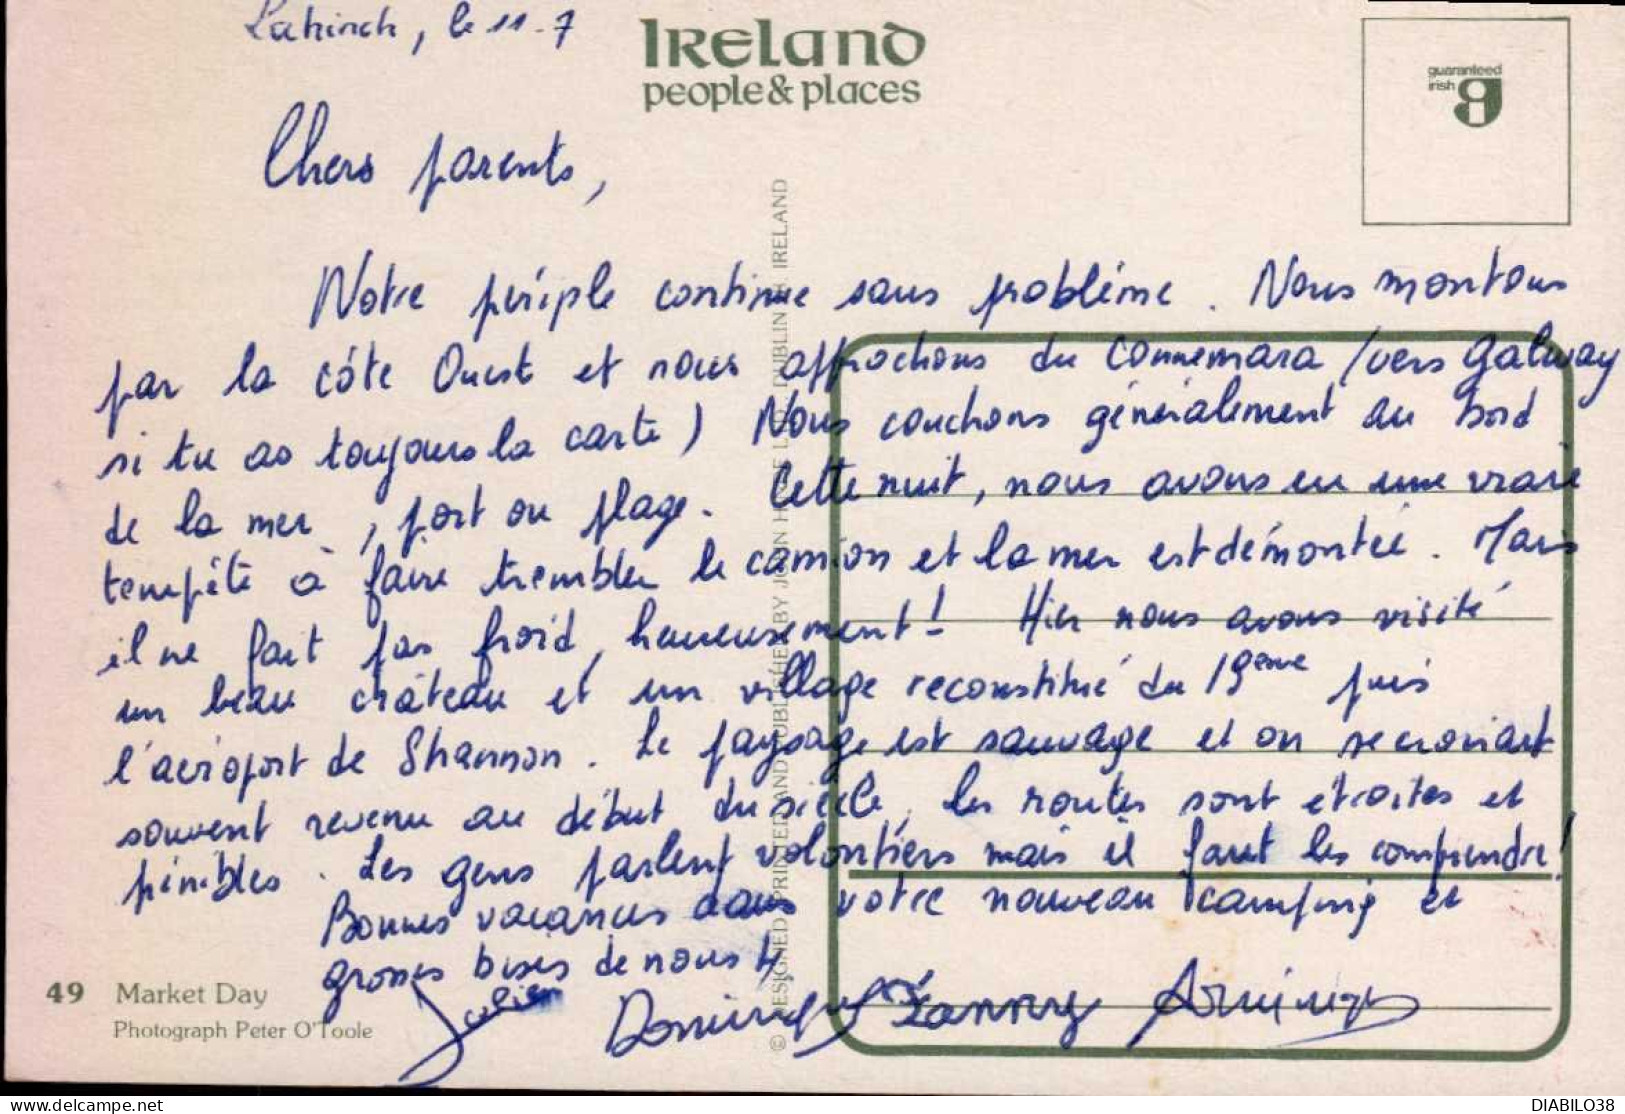 Lahinch, le 11-7
IRELAND
people & places
guaranteed
irish
Chers parents,
Notre périple continue sans problème. Nous montons
par la côte Ouest et nous approchons du Connemara (vers Galway
si tu as toujours la carte) Nous couchons généralement au bord
de la mer, port ou plage. Cette nuit, nous avons eu une vraie
tempête à faire trembler le camion et la mer est démontée. Mais
il ne fait pas froid, heureusement! Hier nous avons visité
un beau château et un village reconstitué du 19ème puis
l'aéroport de Shannon. Le paysage est sauvage et on se croirait
souvent revenu au début du siècle, les routes sont étroites et
pénibles. Les gens parlent volontiers mais il faut les comprendre!
Bonnes vacances dans votre nouveau camping et
grosses bises de nous 4
Julien Dominique Fanny
49 Market Day
Photograph Peter O'Toole
© DESIGNED, PRINTED AND PUBLISHED BY JOHN HINDE LTD., DUBLIN IRELAND
Delcampe.net
DIABILO38